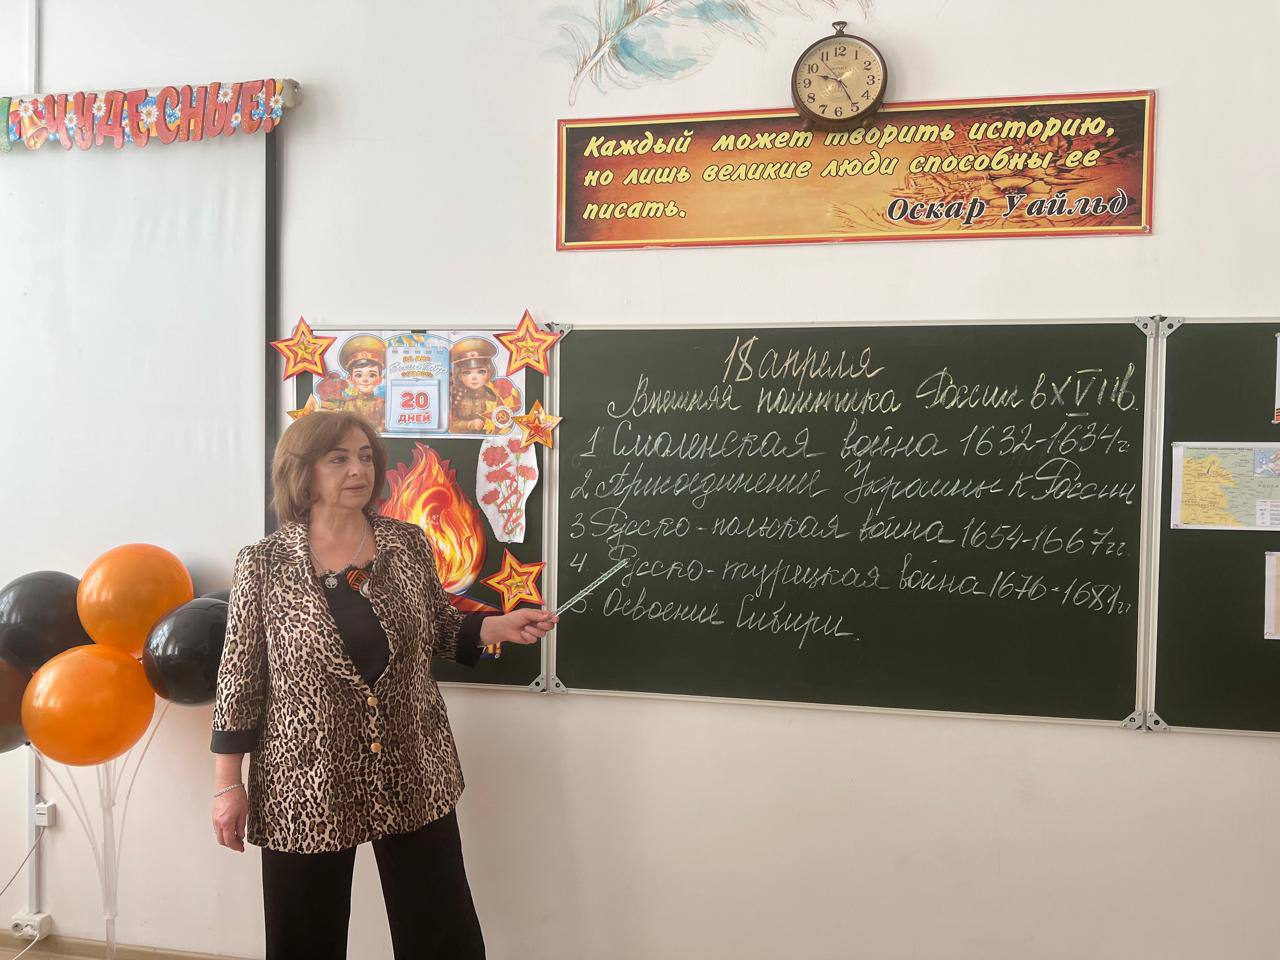 ЧУДЕСНЫЕ!
Каждый может творить историю,
но лишь великие люди способны ее
писать.
Оскар Уайльд
12
1
2
3
4
5
6
7
8
9
10
11
20
ДНЕЙ
18 апреля
Внешняя политика России в XVII в.
1 Смоленская война 1632-1634г.
2. Присоединение Украины к России
3 Русско-польская война 1654-1667гг.
4. Русско-турецкая война 1676-1681гг
5. Освоение Сибири.